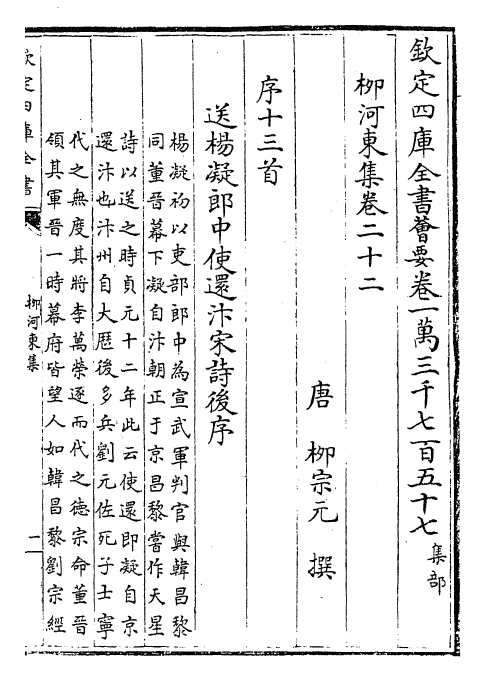 欽定四庫全書薈要卷一萬三千七百五十七 集部
柳河東集卷二十二
唐 柳宗元 撰
序十三首
送楊凝郎中使還汴宋詩後序
楊凝初以吏部郎中為宣武軍判官與韓昌黎
同董晉幕下凝自汴朝正于京昌黎嘗作天星
詩以送之時貞元十二年此云使還即凝自京
還汴也汴州自大厯後多兵劉元佐死子士寧
代之無度其將李萬榮逐而代之德宗命董晉
領其軍晉一時幕府皆望人如韓昌黎劉宗經
欽定四庫全書
柳河東集
一